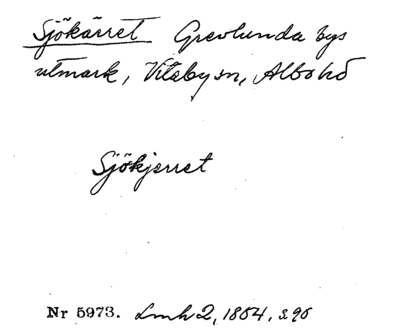 Sjökärret Grevlunda bys
utmark, Vitaby sn, Albo hd
Sjökjerret
Nr 5973. Lmh 2, 1864, s. 96